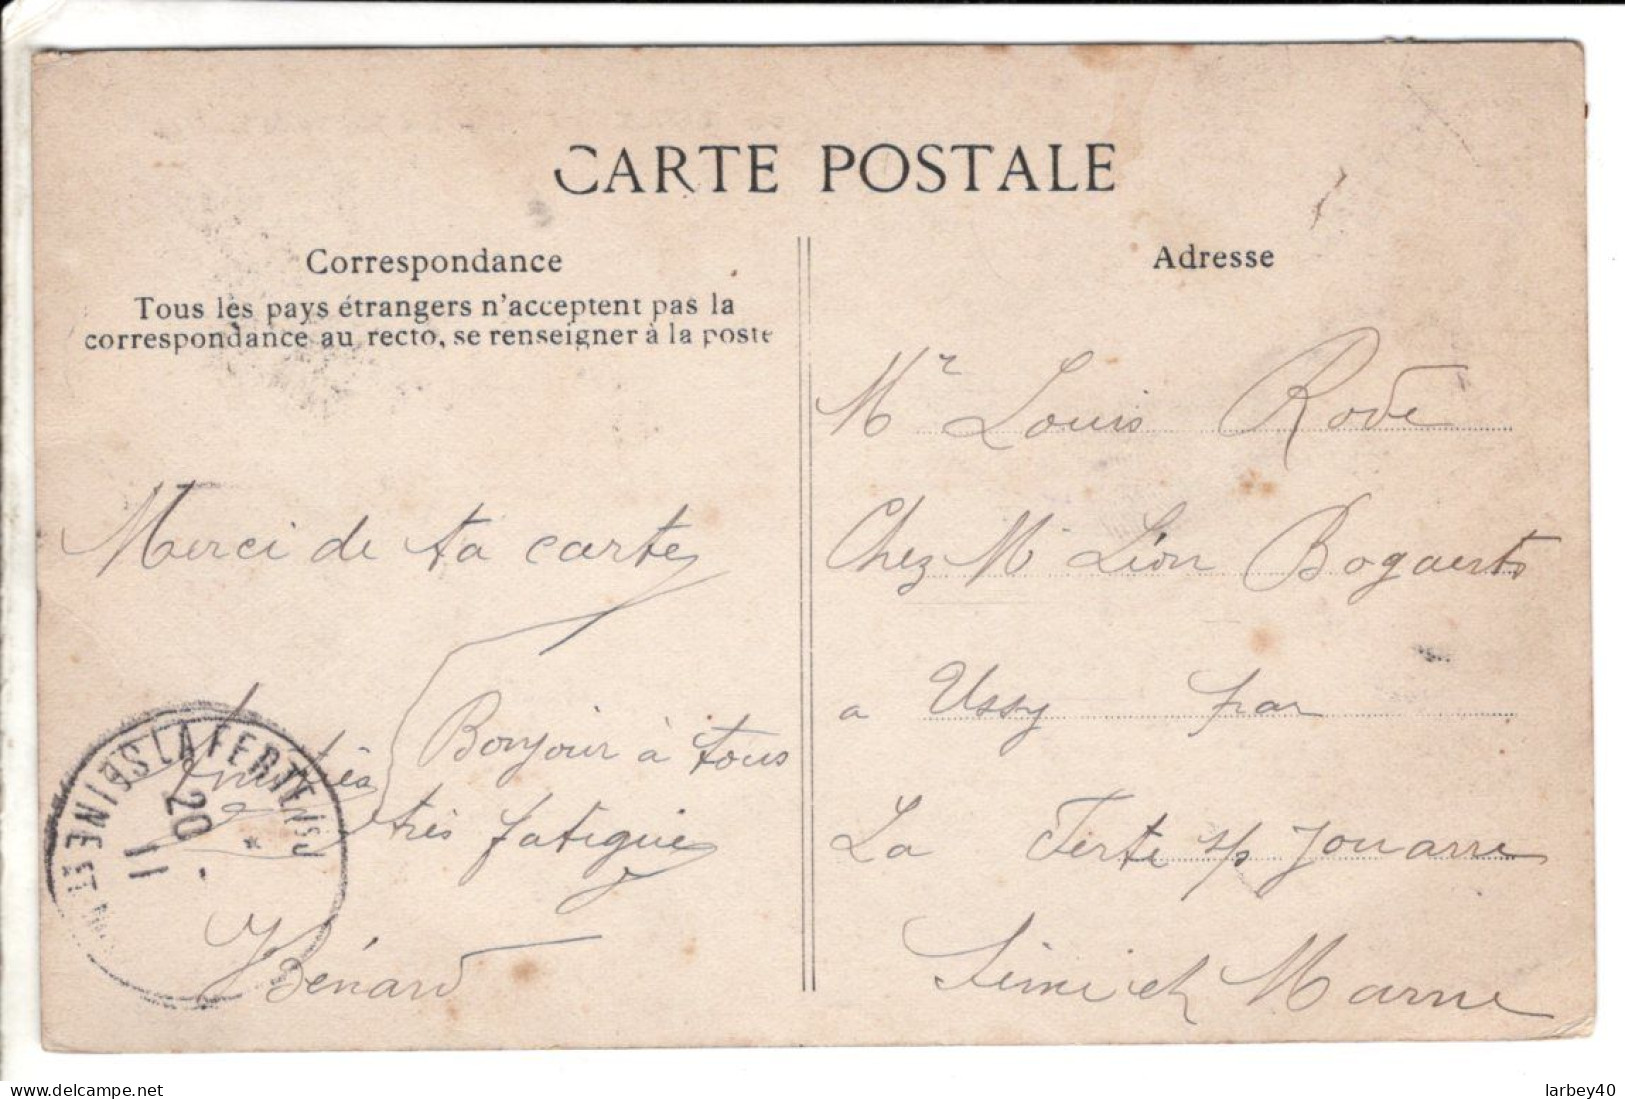 CARTE POSTALE
Correspondance
Tous les pays étrangers n'acceptent pas la
correspondance au recto, se renseigner à la poste
Merci de ta carte
Bonjour à tous
très fatiguée
Bénard
LA FERTE-S-J
SEINE ET M
20
11
Adresse
Mr Louis Rode
Chez Mr Léon Bogaerts
a Ussy par
La Ferte s/s Jouarre
Seine et Marne
delcampe.net
larbey40